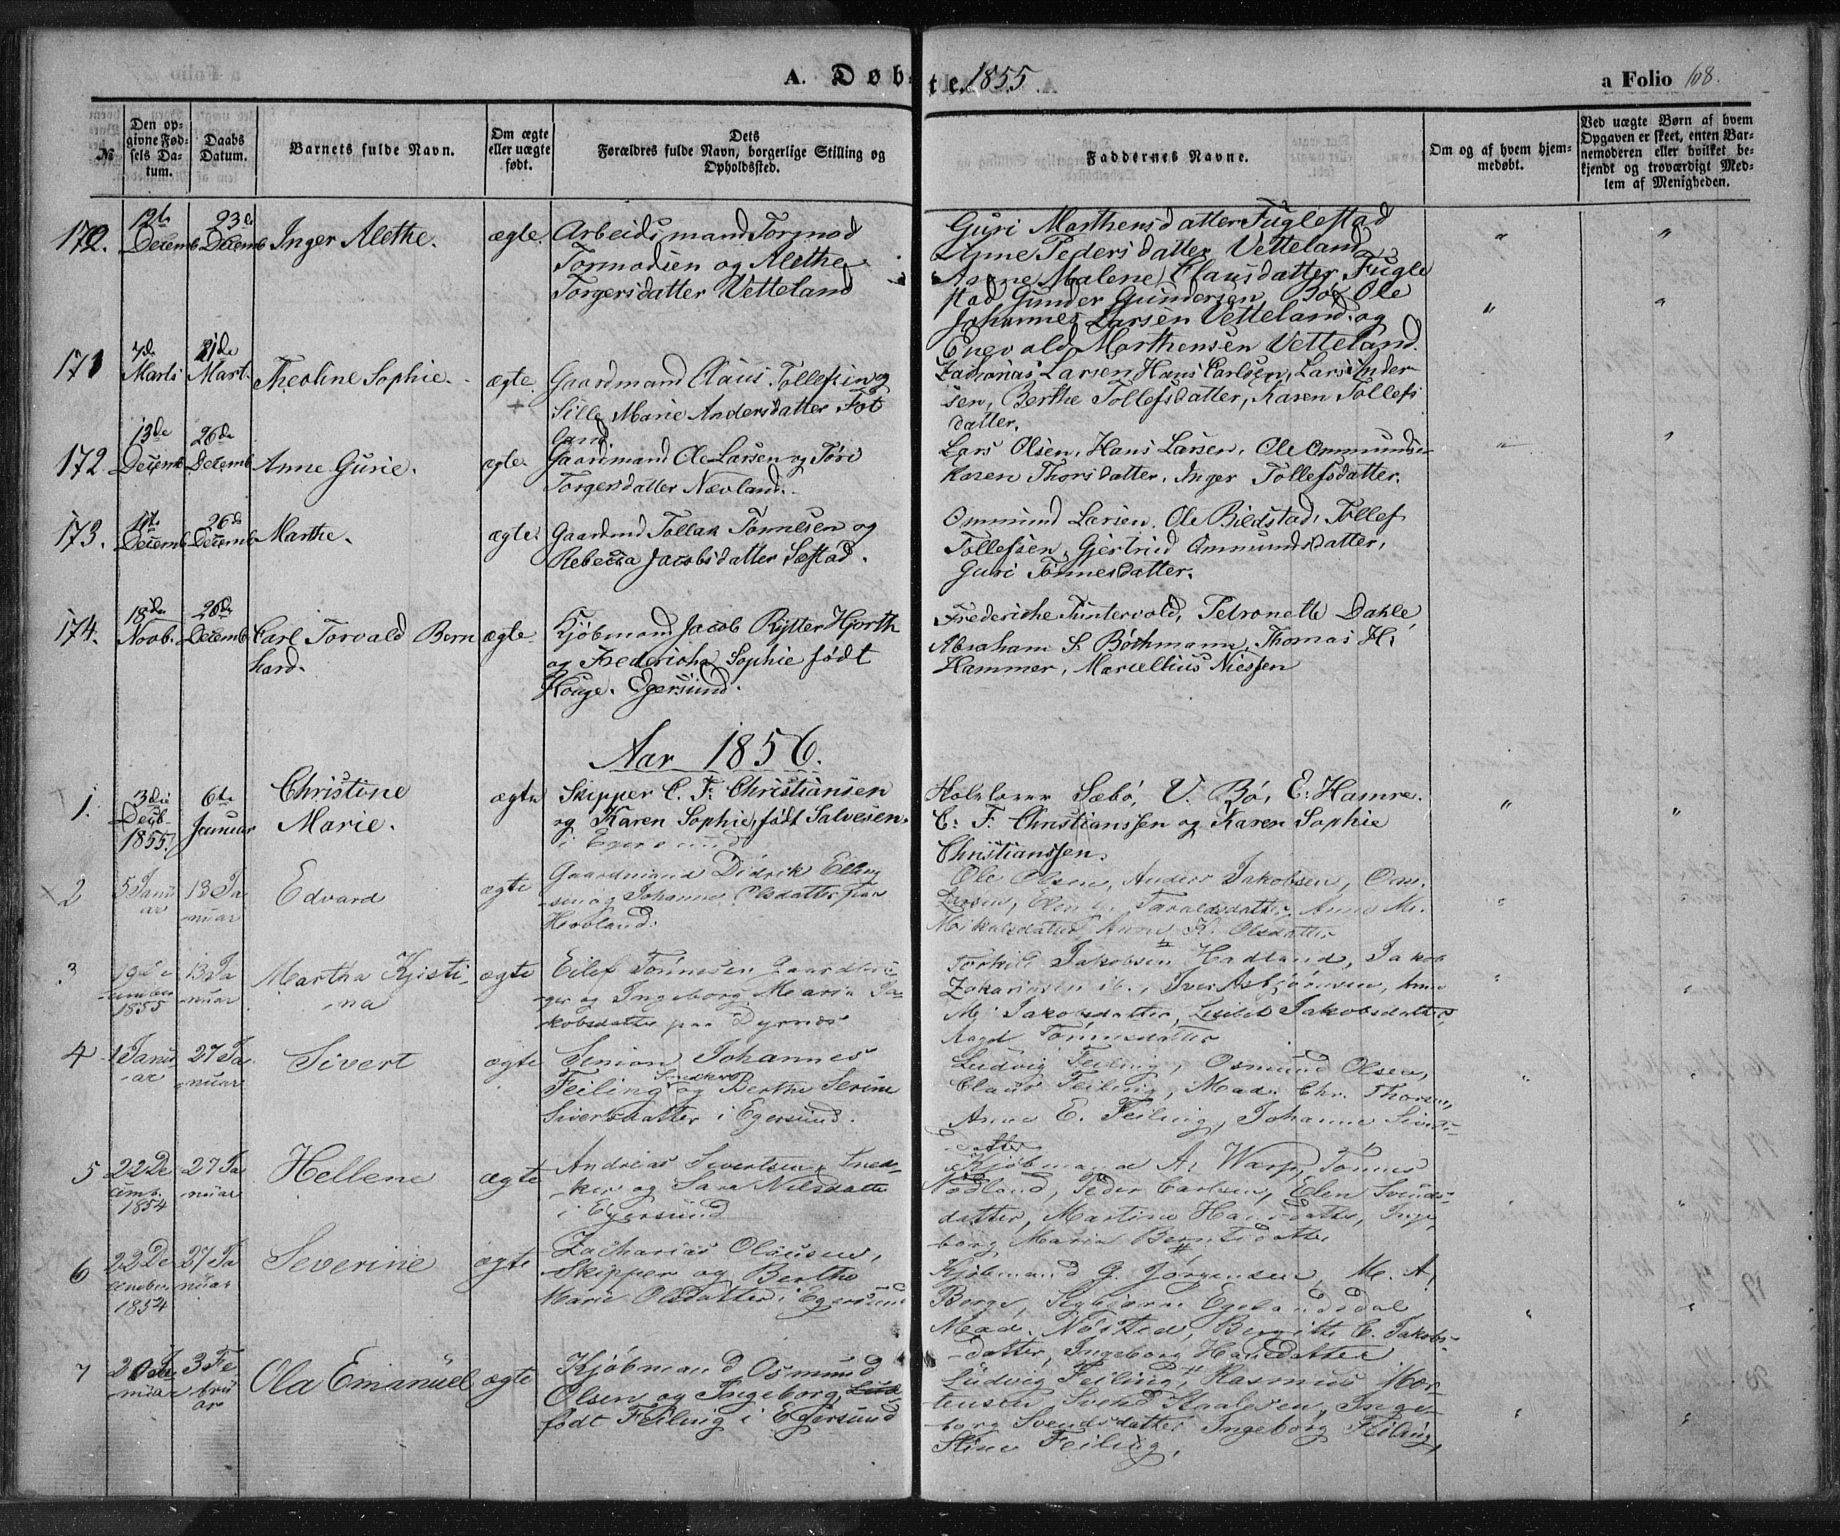 A. Døbte. 1855.
a Folio 168.
№
Den opgivne Fødsels Datum.
Daabs Datum.
Barnets fulde Navn.
Om ægte eller uægte født.
Dets Forældres fulde Navn, borgerlige Stilling og Opholdssted.
Faddernes Navne.
Om og af hvem hjemmedøbt.
Ved uægte Børn af hvem Opgaven er skeet, enten Barnemoderen eller hvilket bekjendt og troværdigt Medlem af Menigheden.
170. 12te Decemb 23de Decemb Inger Alethe. ægte. Arbeidsmand Tormod
Tormodsen og Alethe
Torgersdatter Vetteland
Guri Morthensdatter Fuglestad
Anne Pedersdatter Vetteland
Anne Malene Clausdatter Fugle
stad Gunder Gundersen Bø, Ole
Johannes Larsen Vetteland og
Enevald Morthensen Vetteland.
171 7de Marts 21de Mart. Theoline Sophie. ægte Gaardmand Claus Tollefsen og
Sille Marie Andersdatter Fot
land.
Zacharias Larsen, Hans Carlsen, Lars Ander
sen, Berthe Tollefsdatter, Karen Tollefs
datter.
172 13de Decemb 26de Decemb Anne Gurie. ægte Gaardmand Ole Larsen og Tori
Torgersdatter Nævland.
Lars Olsen, Hans Larsen, Ole Ommundsen
Karen Thorsdatter, Inger Tollefsdatter.
173. Decemb 26de Decemb Marthe. ægte. Gaardmd Tollak Tønnesen og
Rebecca Jacobsdatter Sæstad.
Ommund Larsen, Ole Biedstad, Tollef
Tollefsen, Gjertrud Ommundsdatter,
Guri Tønnesdatter.
174. 18de Novb. 26de Decemb Carl Torvald Bern
hard. ægte Kjøbmand Jacob Rytter Hjorth
og Fredericha Sophie født
Houge. Egersund.
Frederiche Puntervold, Petronelle Dahle,
Abraham S. Bøthmann, Thomas H.
Hammer, Marcellius Niessen
Aar 1856.
1. 3die Decb. 1855. 6te Januar Christine
Marie. ægte Skipper C. F. Christiansen
og Karen Sophie, født Salvesen.
i Egersund
Sæbø, V. Bø, E. Hamre.
C. F. Christianssen og Karen Sophie
Christianssen.
2 5 Januar 13 Januar Edvard ægte Gaardmand Didrik Elling
sen og Johanne Olsdatter paa
Hovland.
Ole Olsen, Anders Jakobsen, Om.
Larsen, Elen Taraldsdatter, Anne M.
Mikalsdatter, Anne K. Olsdatter
3 1855 13 Januar Martha Kjisti-
na ægte Eilef Tønnesen Gaardbru
ger og Ingeborg Maria Ja-
kobsdatter paa Dyrnes
Torkild Jakobsen Hadland, Jakob
Zakariasen ib., Iver Asbjørnsen, Anne
M. Jakobsdatter, Jakobsdatter,
Aagd Tønnesdatter
4 1 Januar 27 Januar Sivert ægte Simon Johannes
Feiling Snedker og Berthe Serine
Sivertsdatter i Egersund.
Ludvig Feiling, Osmund Olsen,
Claus Feiling, Mad. Chr. Thorsen,
Anne E. Feiling, Johanne Siverts-
datter
5 22 Decemb. 1854 27 Januar Hellene ægte Andreas Sivertsen Sned-
ker og Sara Nilsdatter
i Egersund
Kjøbmand A. Warp, Tønnes
Nodland, Peder Carlsen, Elen Svends-
datter, Martine Hansdatter, Inge
borg Maria Berntsdatter
6 22 December 1854 27 Januar Severine ægte Zacharias Olausen,
Skipper og Berthe
Marie Olsdatter i Egersund
Kjøbmand G. Jørgensen, M. A.
Borge, Sigbjørn Egebandsdal
Mad. Nøsted, Bergitte C. Jakobs-
datter, Ingeborg Hansdatter
7 3 Februar Ola Emanuel ægte Kjøbmand Osmund
Olsen og Ingeborg
født Feiling i Egersund
Ludvig Feiling, Rasmus Mor
tensen, Svend Staalesen, Inge
borg Svendsdatter, Ingeborg Feiling,
Stine Feiling,